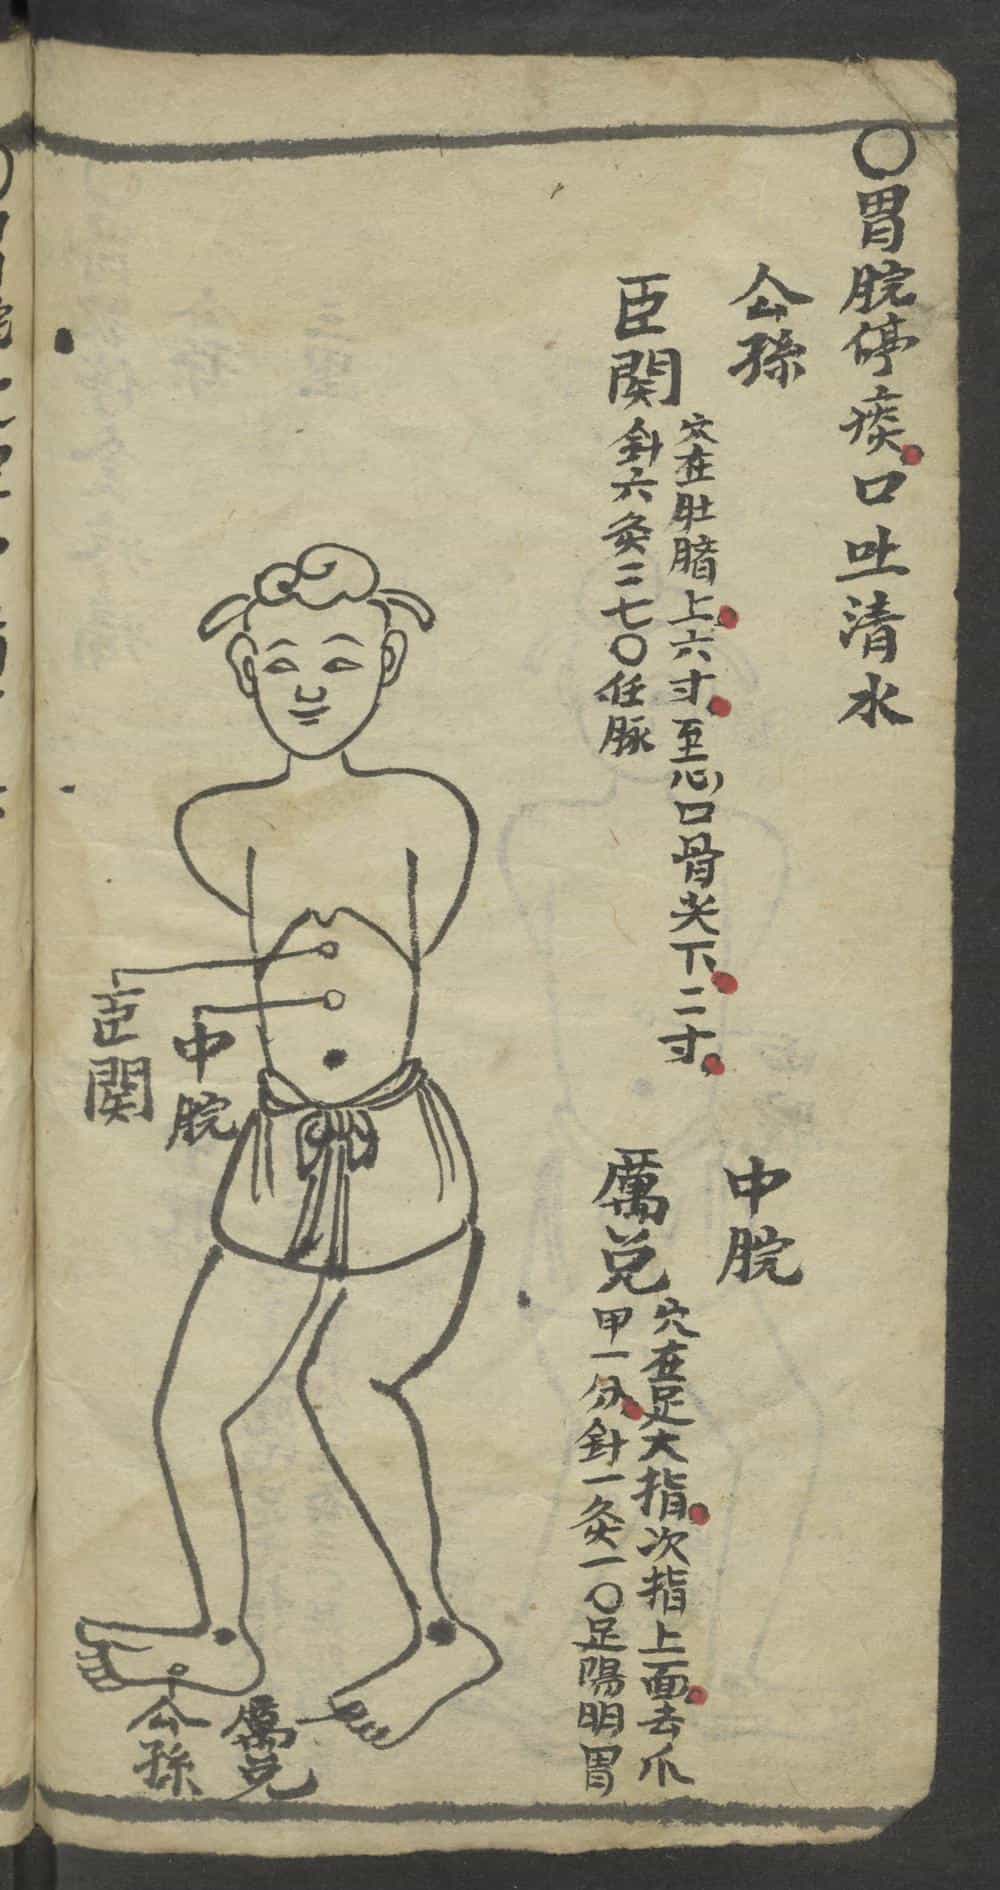 〇胃脘停痰口吐清水
公孫
中脘
臣関
穴在肚臍上六寸至心口骨尖下二寸
針六灸二七〇任脉
厲兑
穴在足大指次指上面去爪
甲一分針一灸一〇足陽明胃
臣関
中脘
公孫
厲兑